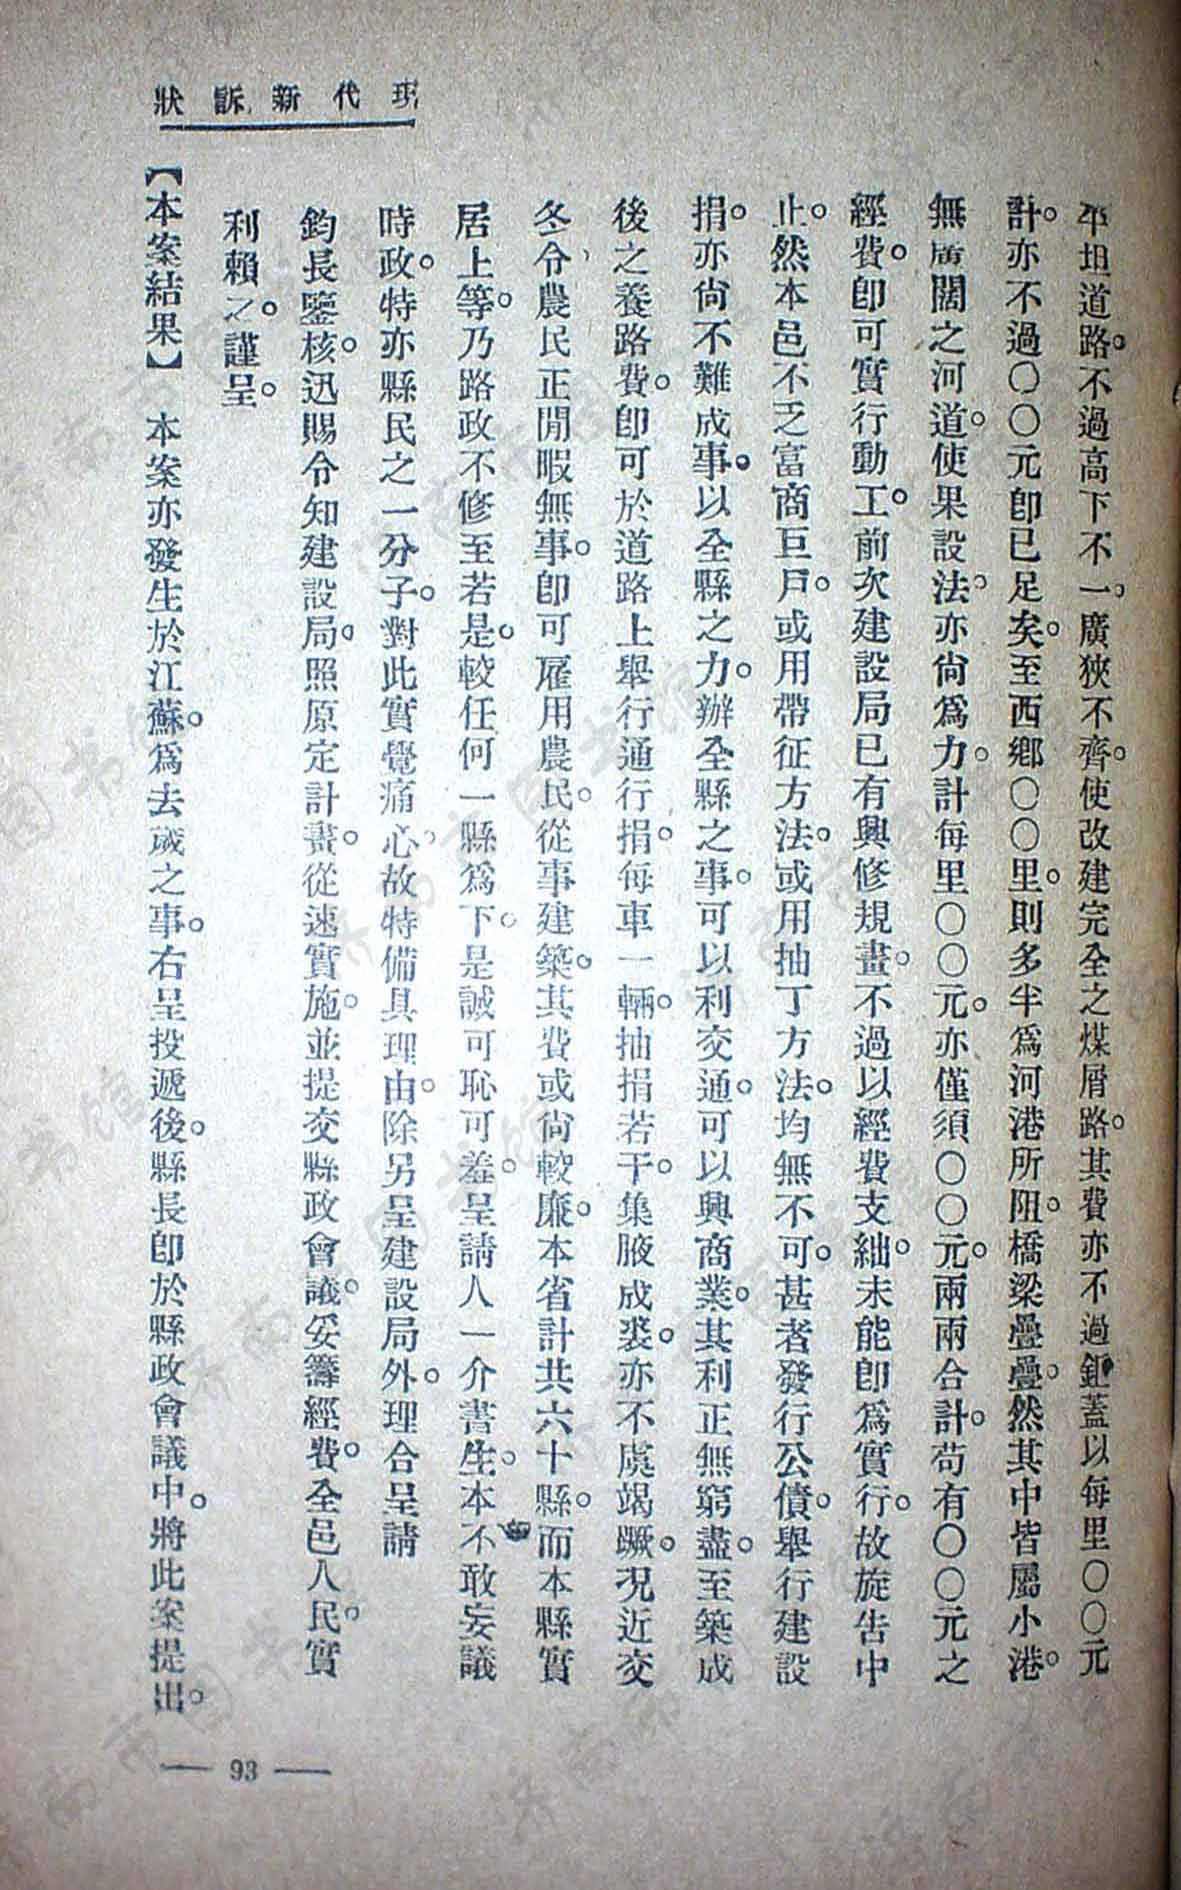 現代新訴狀
平坦道路。不過高下不一。廣狹不齊。使改建完全之煤屑路。其費亦不過鉅。蓋以每里〇〇元
計。亦不過〇〇元卽已足矣。至西鄉〇〇里。則多半爲河港所阻。橋梁疊疊。然其中皆屬小港。
無廣闊之河道。使果設法。亦尙爲力。計每里〇〇元。亦僅須〇〇元。兩兩合計。苟有〇〇元之
經費。卽可實行動工。前次建設局已有興修規畫。不過以經費支絀。未能卽爲實行。故旋告中
止。然本邑不乏富商巨戶。或用帶征方法。或用抽丁方法。均無不可。甚者發行公債。舉行建設
捐。亦尙不難成事。以全縣之力。辦全縣之事。可以利交通。可以興商業。其利正無窮盡。至築成
後之養路費。卽可於道路上舉行通行捐。每車一輛。抽捐若干。集腋成裘。亦不虞竭蹶。況近交
冬令、農民正閒暇無事。卽可雇用農民。從事建築。其費或尙較廉。本省計共六十縣。而本縣實
居上等。乃路政不修至若是。較任何一縣爲下。是誠可恥可羞。呈請人一介書生。本不敢妄議
時政。特亦縣民之一分子。對此實覺痛心。故特備具理由。除另呈建設局外。理合呈請
鈞長鑒核。迅賜令知建設局。照原定計畫。從速實施。並提交縣政會議。妥籌經費。全邑人民。實
利賴之。謹呈。
【本案結果】 本案亦發生於江蘇。爲去歲之事。右呈投遞後。縣長卽於縣政會議中。將此案提出。
— 93 —